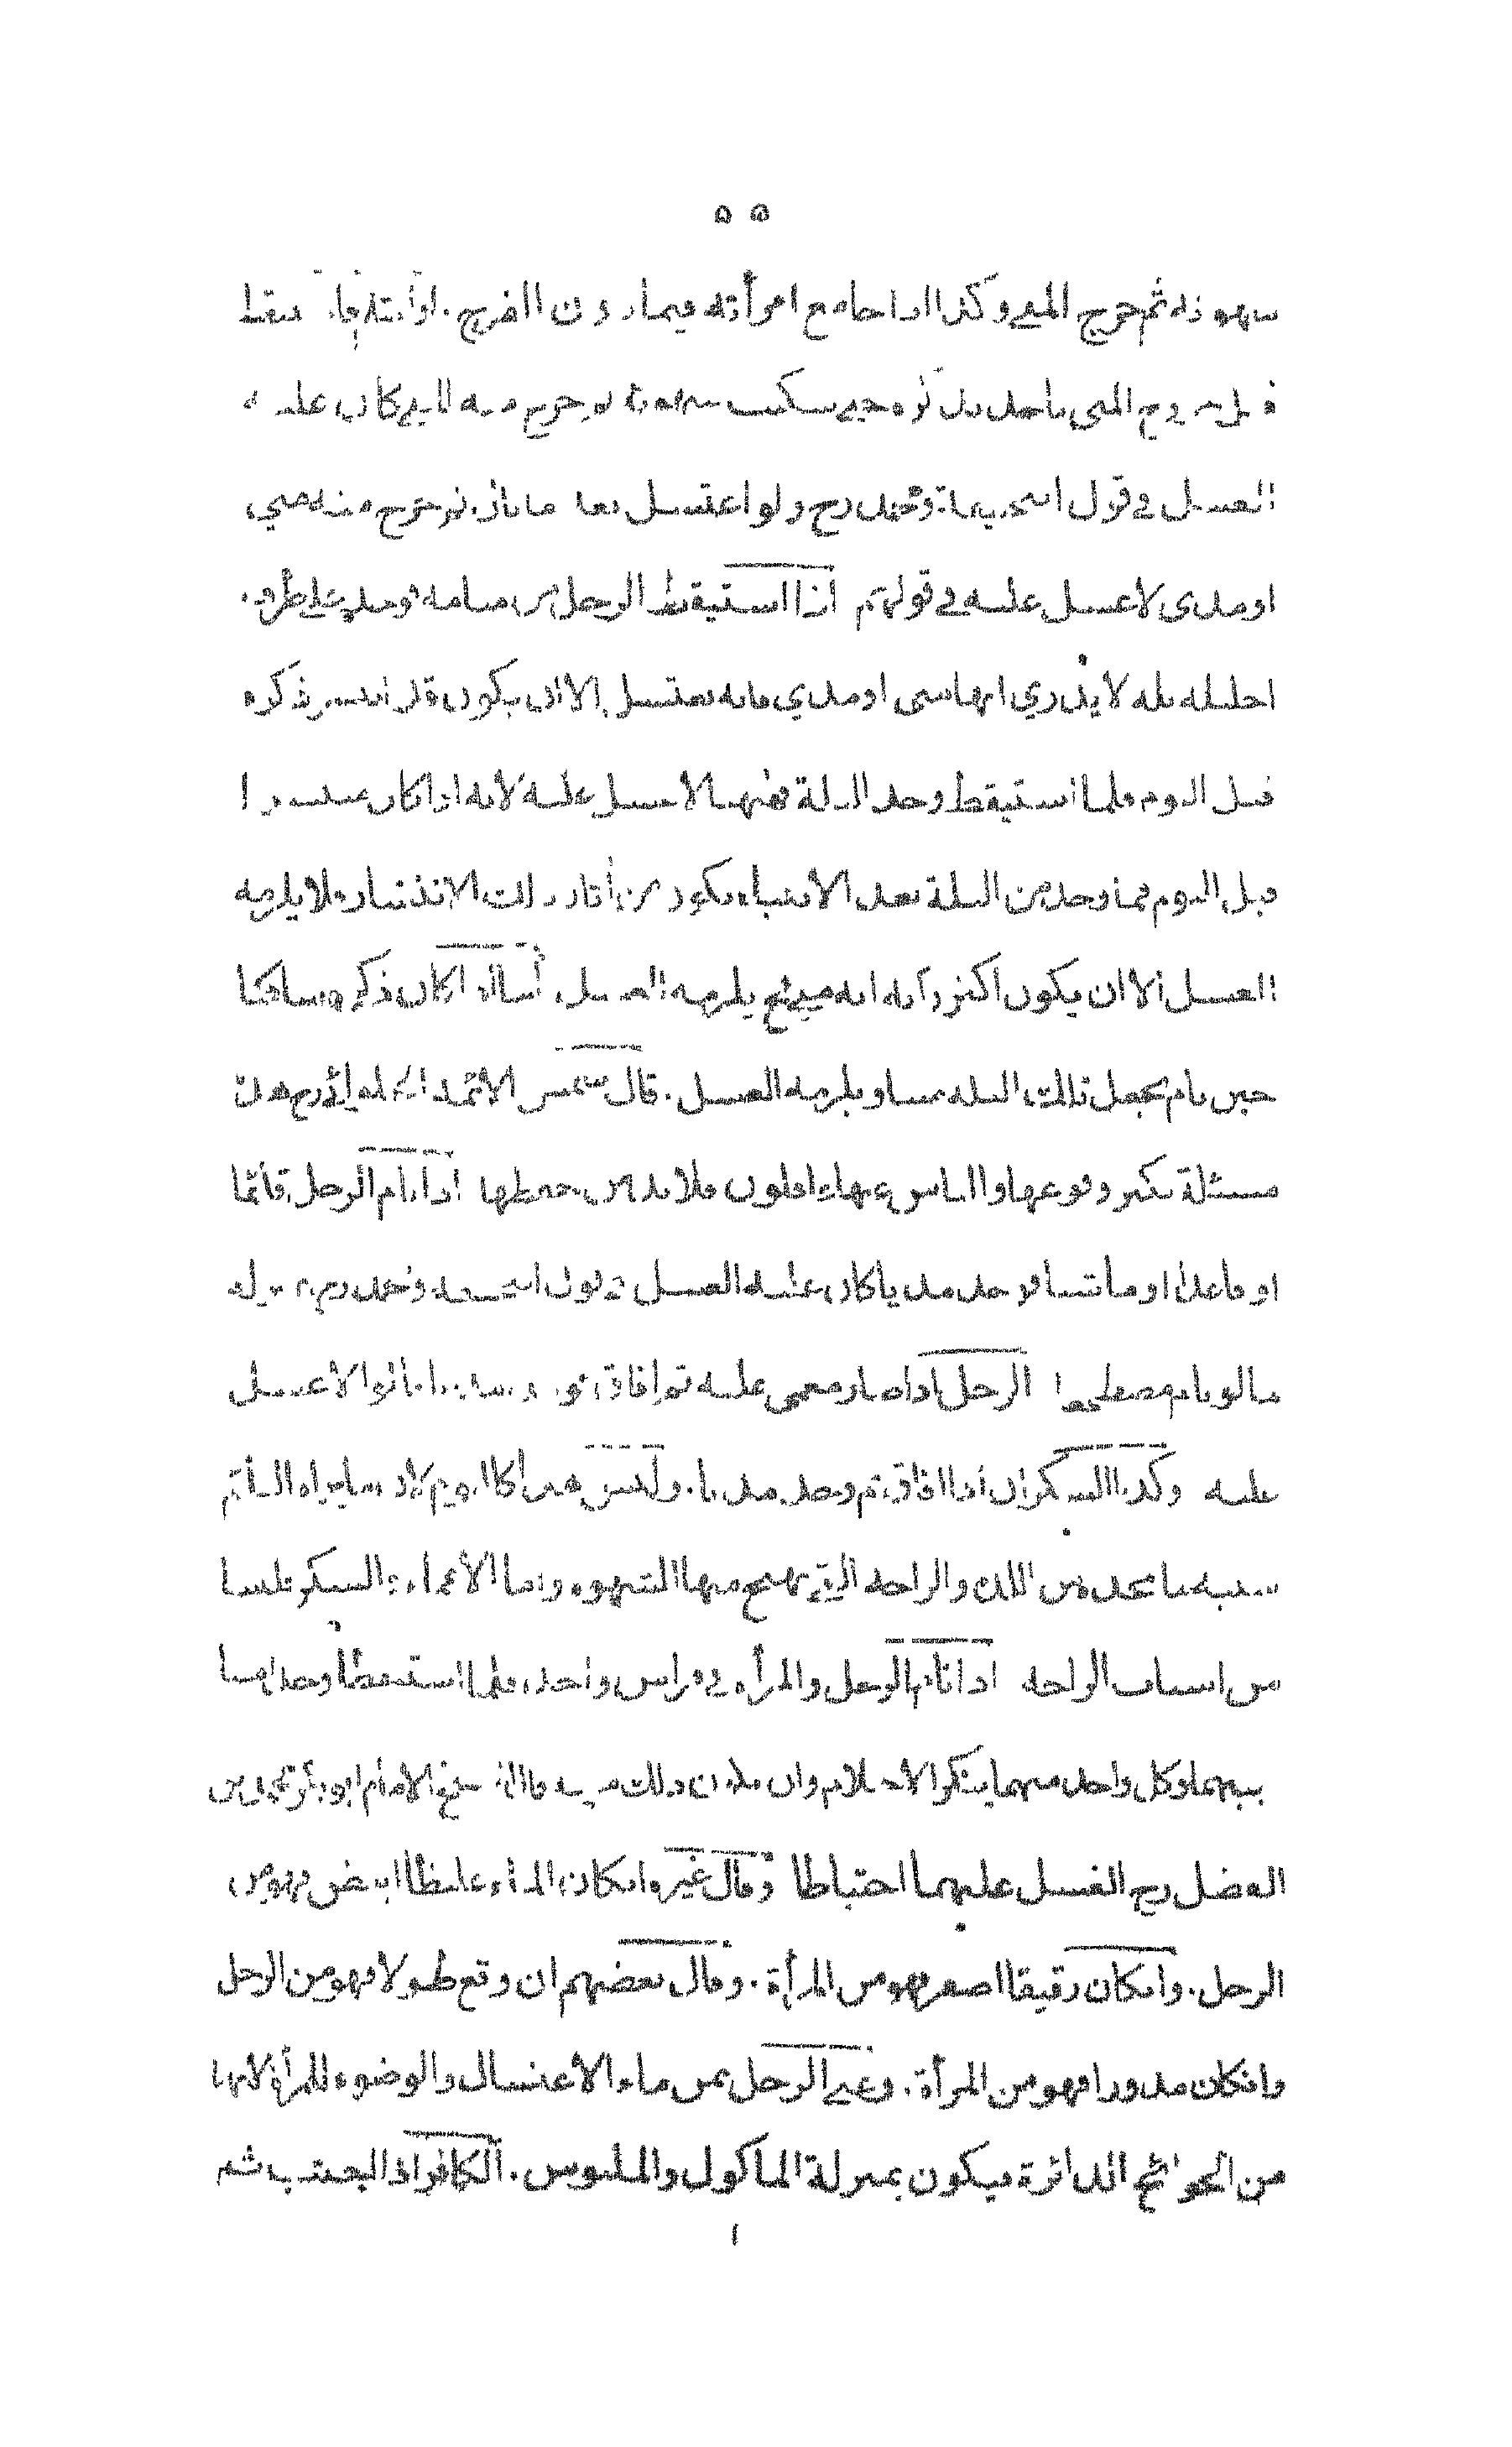 ٥٥
شهوته ثم خرج المني وكذا اذا جامع امرأته فيما دون الفرج
خروج المني حتى سكنت شهوته ثم خرج منه المني كان عليه
الغسل في قول ابي حنيفة ومحمد رح ولو اغتسل بعد ما بال ثم خرج منه مني
او مذي لا غسل عليه في قولهم اذا استيقظ الرجل من منامه فوجد على طرف
احليله بلة لا يدري انها مني او مذي فانه يغتسل الا ان يكون قد انتشر ذكره
قبل النوم فلما استيقظ وجد البلة فههنا لا غسل عليه لانه اذا كان منتشرا
قبل النوم فما وجد من البلة بعد الانتباه يكون من آثار ذلك الانتشار فلا يلزمه
الغسل الا ان يكون اكبر رأيه انه مني فح يلزمه الغسل اما اذا كان ذكره ساكنا
حين نام يجعل تلك البلة منيا ويلزمه الغسل. قال شمس الائمة الحلواني رح هذه
مسئلة يكثر وقوعها والناس عنها غافلون فلا بد من حفظها اذا نام الرجل قائما
او قاعدا او ماشيا فوجد مذيا كان عليه الغسل في قول ابي حنيفة ومحمد رح
ما لو نام مضطجعا الرجل اذا صار مغمى عليه ثم افاق فوجد مذيا لا غسل
عليه وكذا السكران اذا افاق ثم وجد مذيا. وليس هذا كالنوم لان ما يراه النائم
سببه ما يجده من اللذة والراحة التي تهيج منها الشهوة واما الاغماء والسكر فليسا
من اسباب الراحة اذا نام الرجل والمرأة في فراش واحد فلما استيقظا وجدا منيا
بينهما وكل واحد منهما ينكر الاحتلام وان يكون ذلك منيه قال الشيخ الامام ابو بكر محمد بن
الفضل رح الغسل عليهما احتياطا وقال غيره انكان الماء غليظا ابيض فهو من
الرجل. وانكان رقيقا اصفر فهو من المرأة. وقال بعضهم ان وقع طولا فهو من الرجل
وانكان مدورا فهو من المرأة. وعلى الرجل ثمن ماء الاغتسال والوضوء للمرأة لانها
من الحوائج الدائرة فيكون بمنزلة المأكول والملبوس. الكافر اذا اجنب ثم
ا